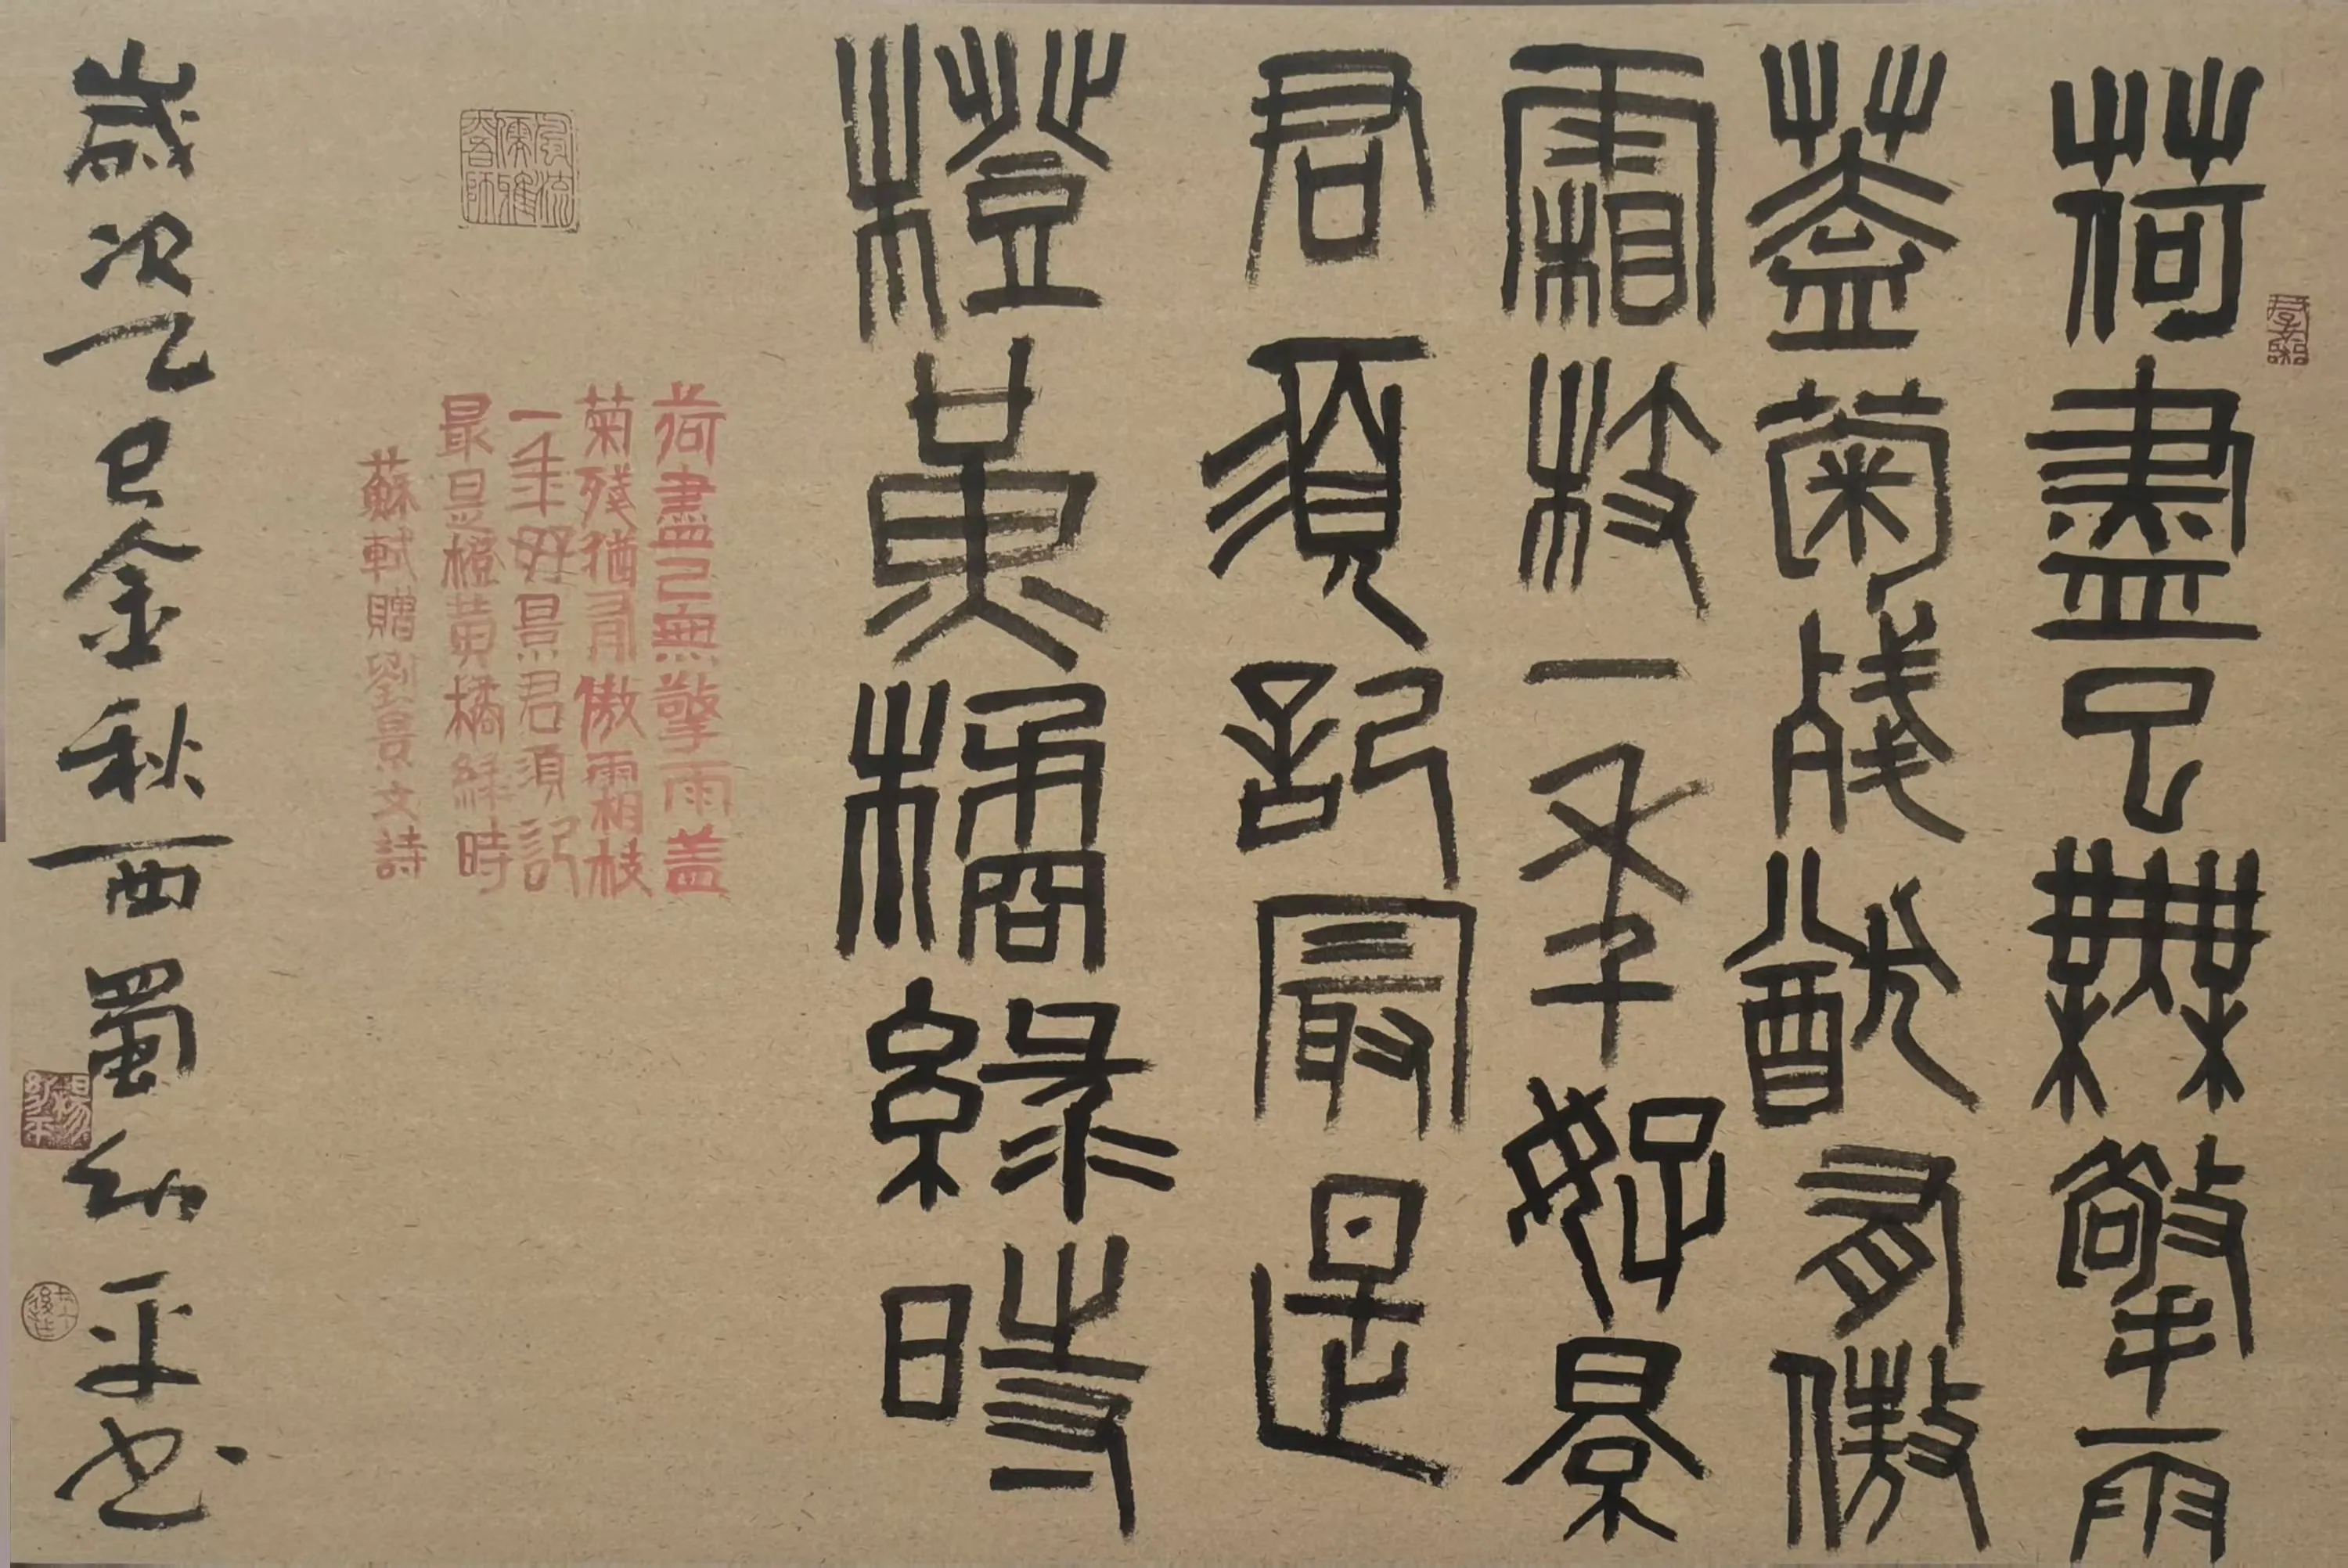 荷盡已無擎雨
蓋菊殘猶有傲
霜枝一年好景
君須記最是
橙黃橘綠時
荷盡已無擎雨蓋
菊殘猶有傲霜枝
一年好景君須記
最是橙黃橘綠時
蘇軾贈劉景文詩
歲次乙巳金秋西蜀幼平书